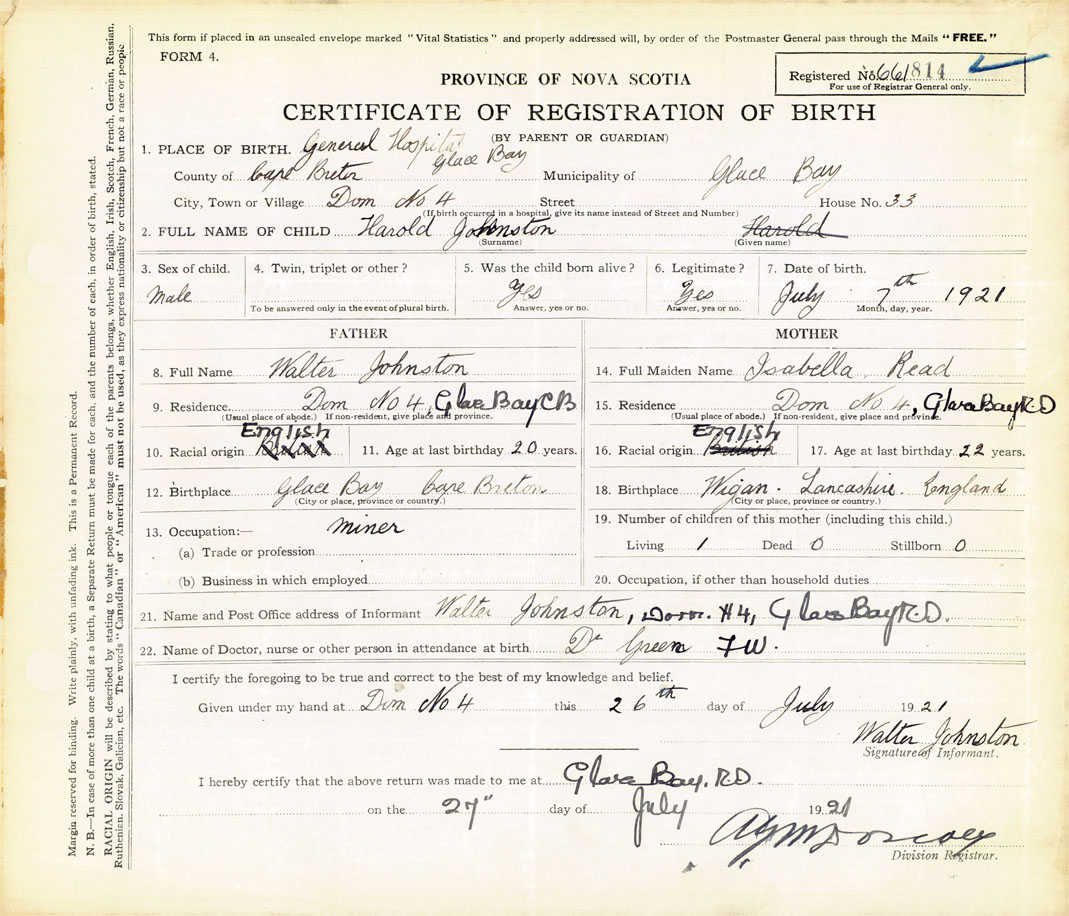 This form if placed in an unsealed envelope marked "Vital Statistics" and properly addressed will, by order of the Postmaster General pass through the Mails "FREE."
FORM 4.
PROVINCE OF NOVA SCOTIA
Registered No. 661814
For use of Registrar General only.
CERTIFICATE OF REGISTRATION OF BIRTH
(BY PARENT OR GUARDIAN)
1. PLACE OF BIRTH. General Hospital Glace Bay
County of Cape Breton Municipality of Glace Bay
City, Town or Village Dom No 4 Street House No. 33
(If birth occurred in a hospital, give its name instead of Street and Number)
2. FULL NAME OF CHILD Harold Johnston Harold
(Surname) (Given name)
3. Sex of child. 4. Twin, triplet or other? 5. Was the child born alive? 6. Legitimate? 7. Date of birth.
Male Yes Yes July 7th 1921
To be answered only in the event of plural birth. Answer, yes or no. Answer, yes or no. Month, day, year.
FATHER
8. Full Name Walter Johnston
9. Residence Dom No 4, Glace Bay CB
(Usual place of abode.) If non-resident, give place and province.
English
10. Racial origin British 11. Age at last birthday 20 years.
12. Birthplace Glace Bay Cape Breton
(City or place, province or country.)
13. Occupation:— miner
(a) Trade or profession
(b) Business in which employed
MOTHER
14. Full Maiden Name Isabella Read
15. Residence Dom No 4, Glace Bay R.D
(Usual place of abode.) If non-resident, give place and province.
English
16. Racial origin British 17. Age at last birthday 22 years.
18. Birthplace Wigan. Lancashire. England
(City or place, province or country.)
19. Number of children of this mother (including this child.)
Living 1 Dead 0 Stillborn 0
20. Occupation, if other than household duties
21. Name and Post Office address of Informant Walter Johnston, Dom. #4, Glace Bay R.D.
22. Name of Doctor, nurse or other person in attendance at birth Dr Green F.W.
I certify the foregoing to be true and correct to the best of my knowledge and belief.
Given under my hand at Dom No 4 this 26th day of July 1921
Walter Johnston
Signature of Informant.
I hereby certify that the above return was made to me at Glace Bay. R.D.
on the 27" day of July 1921
Division Registrar.
Margin reserved for binding. Write plainly, with unfading ink. This is a Permanent Record.
N. B.—In case of more than one child at a birth, a Separate Return must be made for each, and the number of each, in order of birth, stated.
RACIAL ORIGIN will be described by stating to what people or tongue each of the parents belongs, whether English, Irish, Scotch, French, German, Russian,
Ruthenian, Slovak, Galician, etc. The words "Canadian" or "American" must not be used, as they express nationality or citizenship but not a race or people.